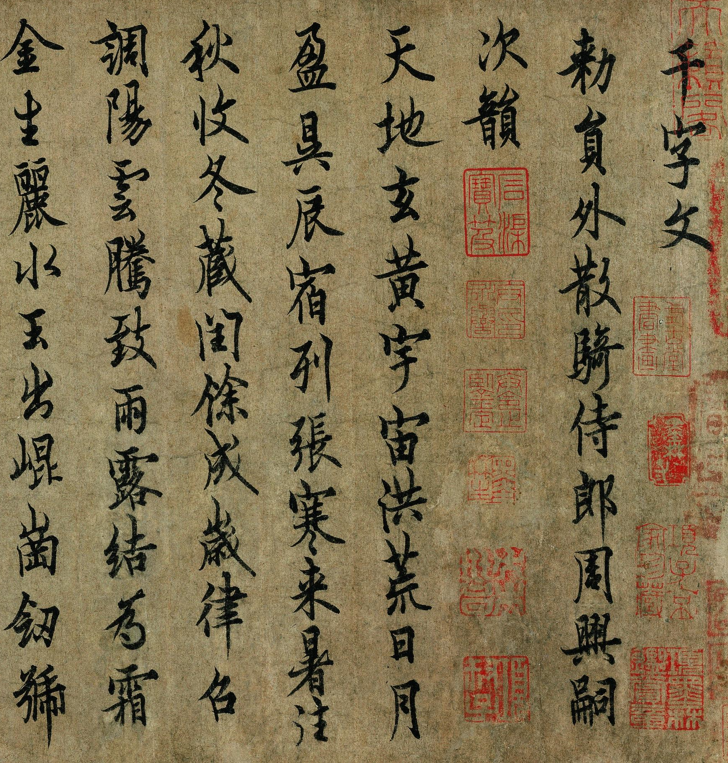 千字文
勑員外散騎侍郎周興嗣
次韻
天地玄黃宇宙洪荒日月
盈昃辰宿列張寒来暑往
秋收冬藏閏餘成歲律召
調陽雲騰致雨露結為霜
金生麗水玉出崐崗釼號